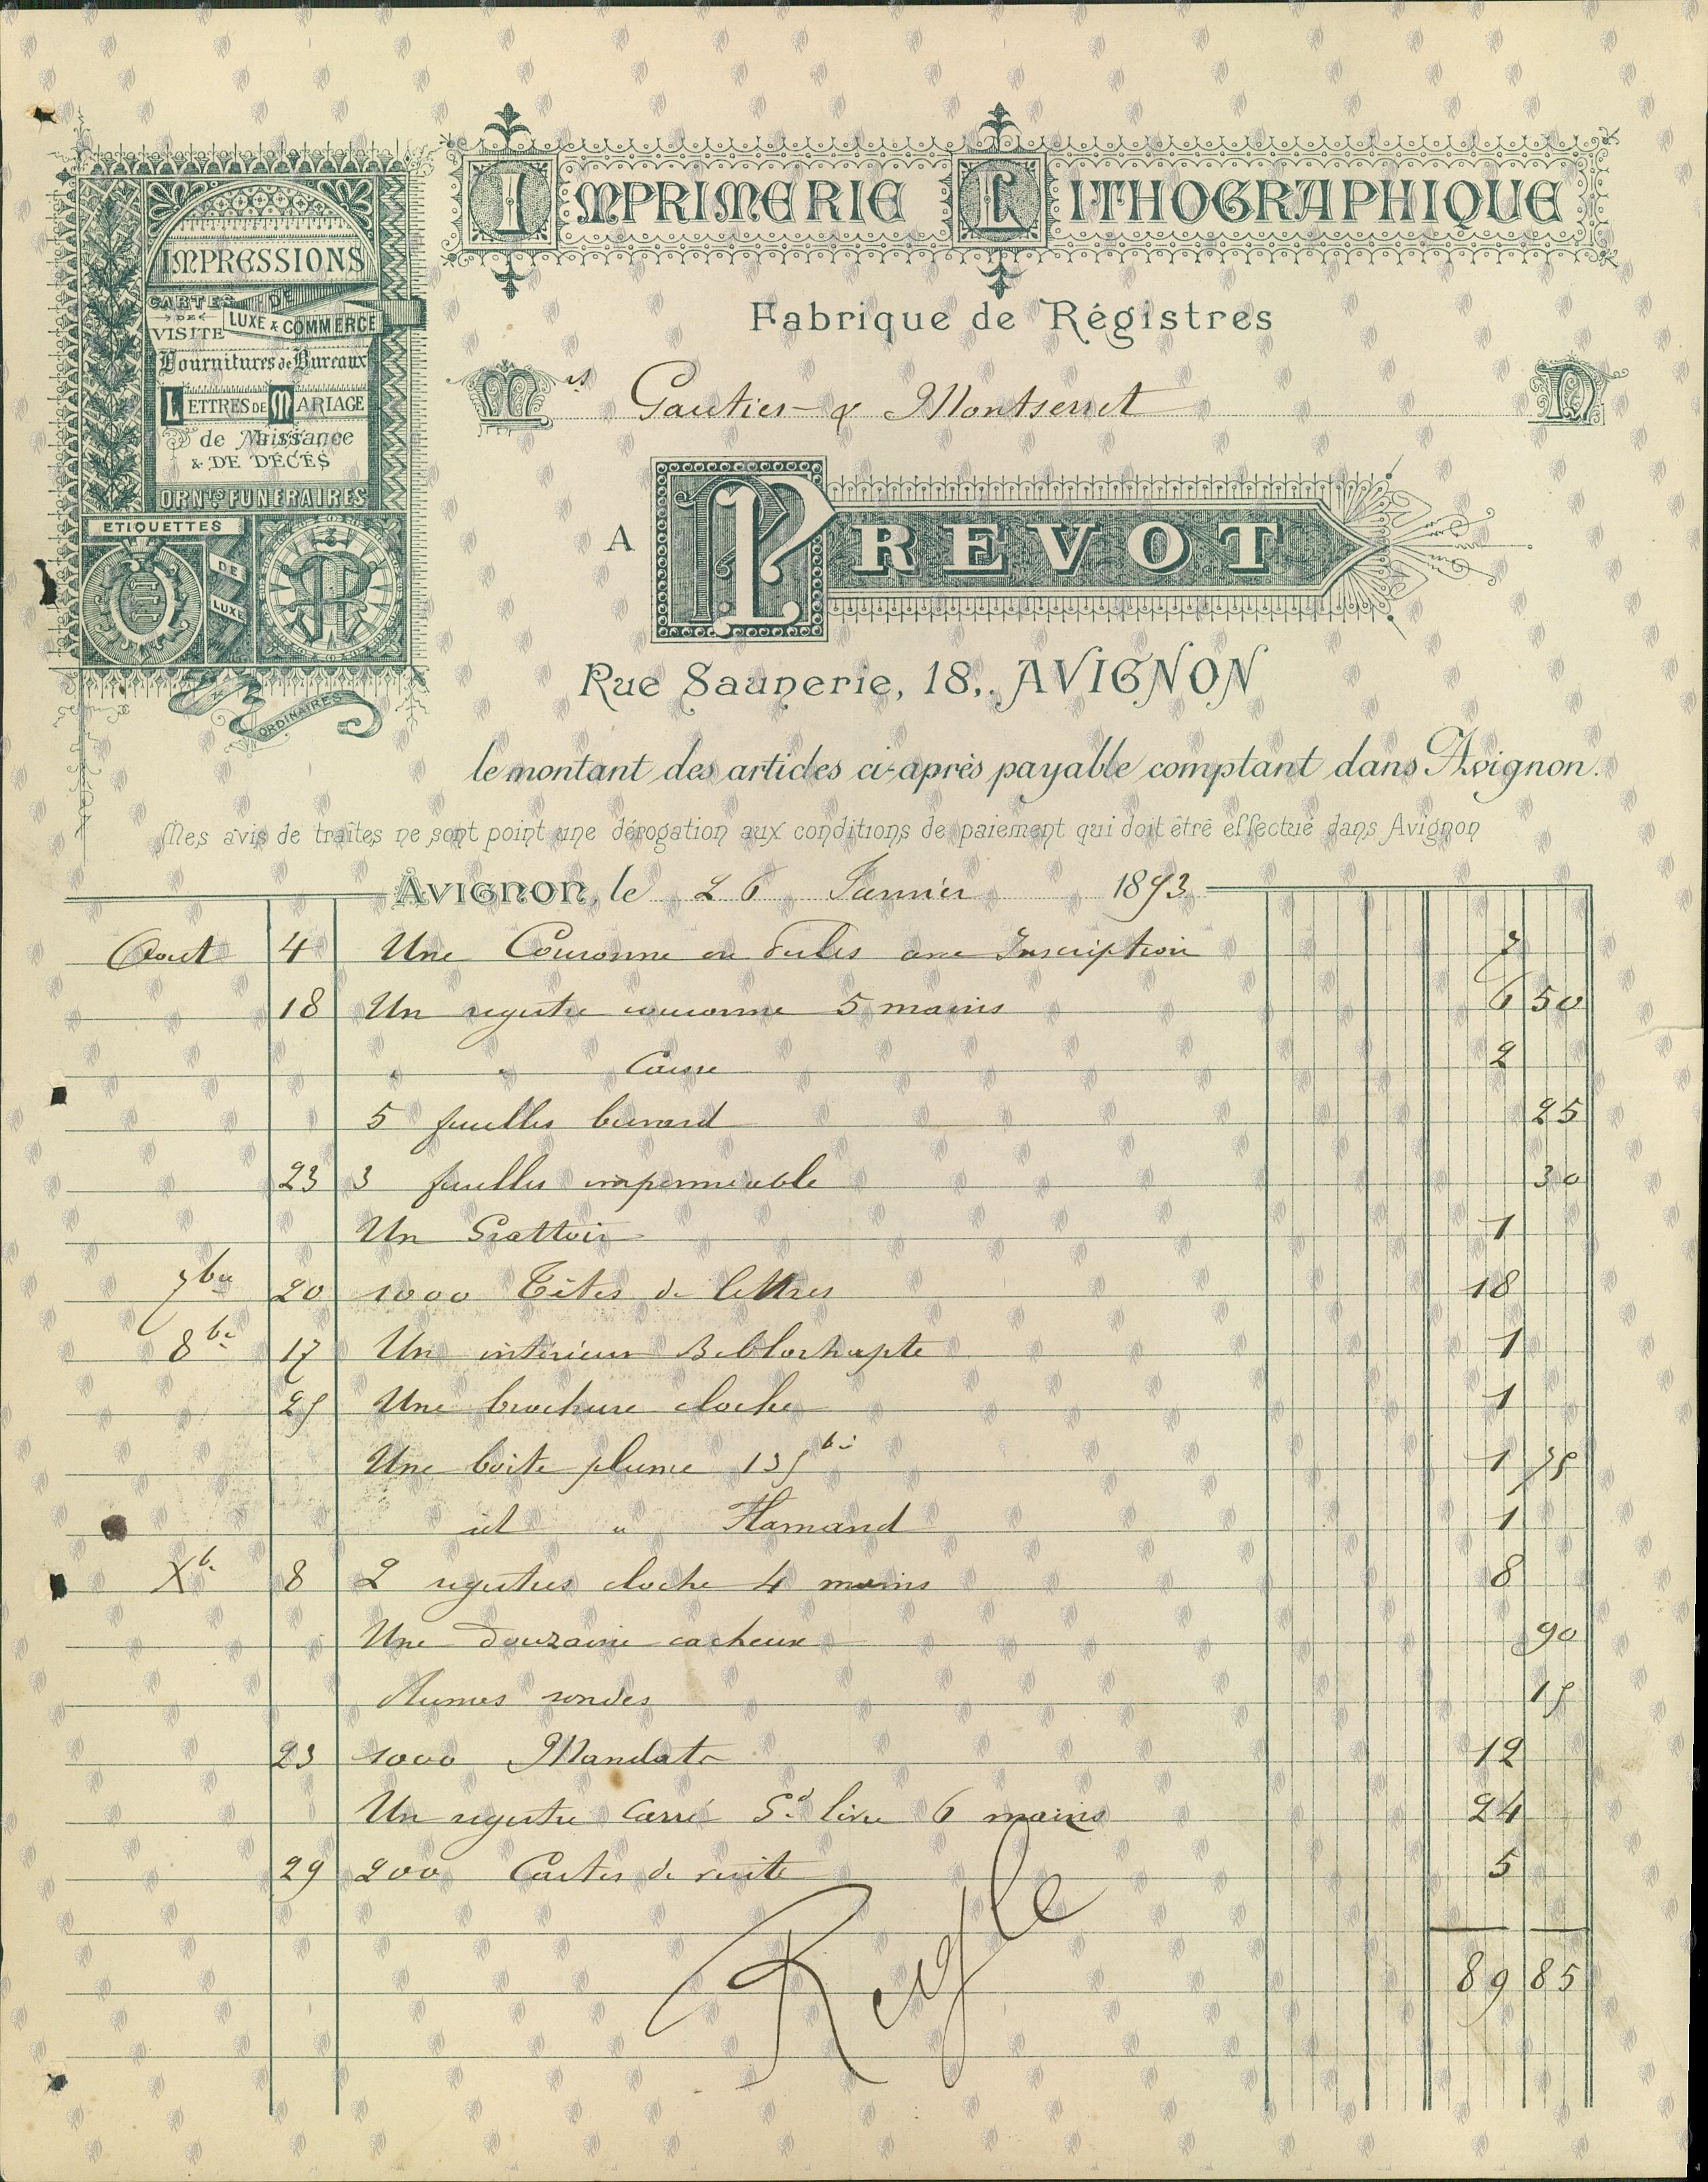 IMPRIMERIE LITHOGRAPHIQUE
Fabrique de Régistres
IMPRESSIONS
CARTES DE VISITE
DE LUXE & COMMERCE
Fournitures de Bureaux
LETTRES DE MARIAGE
de Naissance
& DE DÉCÉS
ORN.TS FUNERAIRES
ETIQUETTES
DE
LUXE
&
ORDINAIRES
M rs Gautier & Montserret D
A PREVOT
Rue Saunerie, 18,. AVIGNON
le montant des articles ci-après payable comptant dans Avignon.
Mes avis de traites ne sont point une dérogation aux conditions de paiement qui doit être effectué dans Avignon
AVIGNON, le 26 Janvier 1893
Aout 4 Une Couronne en Inscription 7
18 Un registre couronne 5 mains 6 50
" " Caisse 2
5 feuilles buvard 25
23 3 feuilles imperméable 30
Un Grattoir 1
7bre 20 1000 Têtes de lettres 18
8bre 17 Un intérieur 1
25 Une brochure cloche 1
Une boite plume 135 bis 1 75
id " Flamand 1
Xb. 8 2 registres cloche 4 mains 8
Une douzaine 90
Plumes rondes 15
23 1000 Mandats 12
Un registre Carré Gd livre 6 mains 24
29 200 Cartes de visite 5
89 85